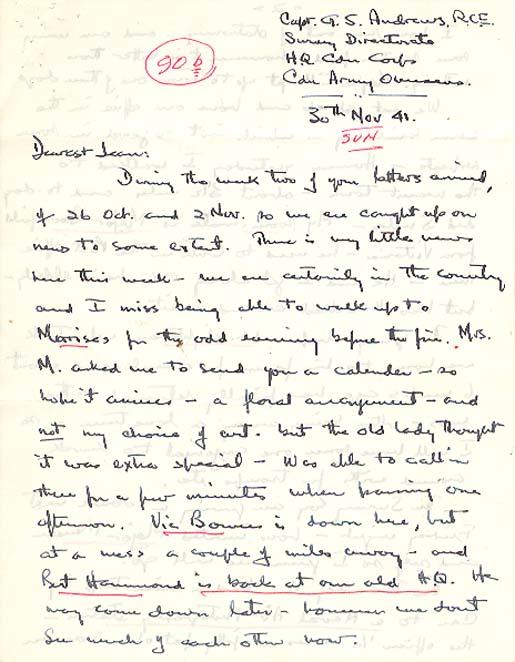 Capt. G. S. Andrews, R.C.E.
Survey Directorate
HQ Cdn Corps
Cdn Army Overseas.
90b
30th Nov 41.
SUN
Dearest Jean:
During the week two of your letters arrived,
of 26 Oct. and 2 Nov. so we are caught up on
news to some extent. There is very little news
here this week - we are certainly in the country
and I miss being able to walk up to
Morrises for the odd evening before the fire. Mrs.
M. asked me to send you a calender - so
hope it arrives - a floral arrangement - and
not my choice of art. but the old lady thought
it was extra special - Was able to call in
there for a few minutes when passing one
afternoon. Vic Bowes is down here, but
at a mess a couple of miles away - and
Bert Hammond is back at our old H.Q. He
may come down later - however we dont
see much of each other now.